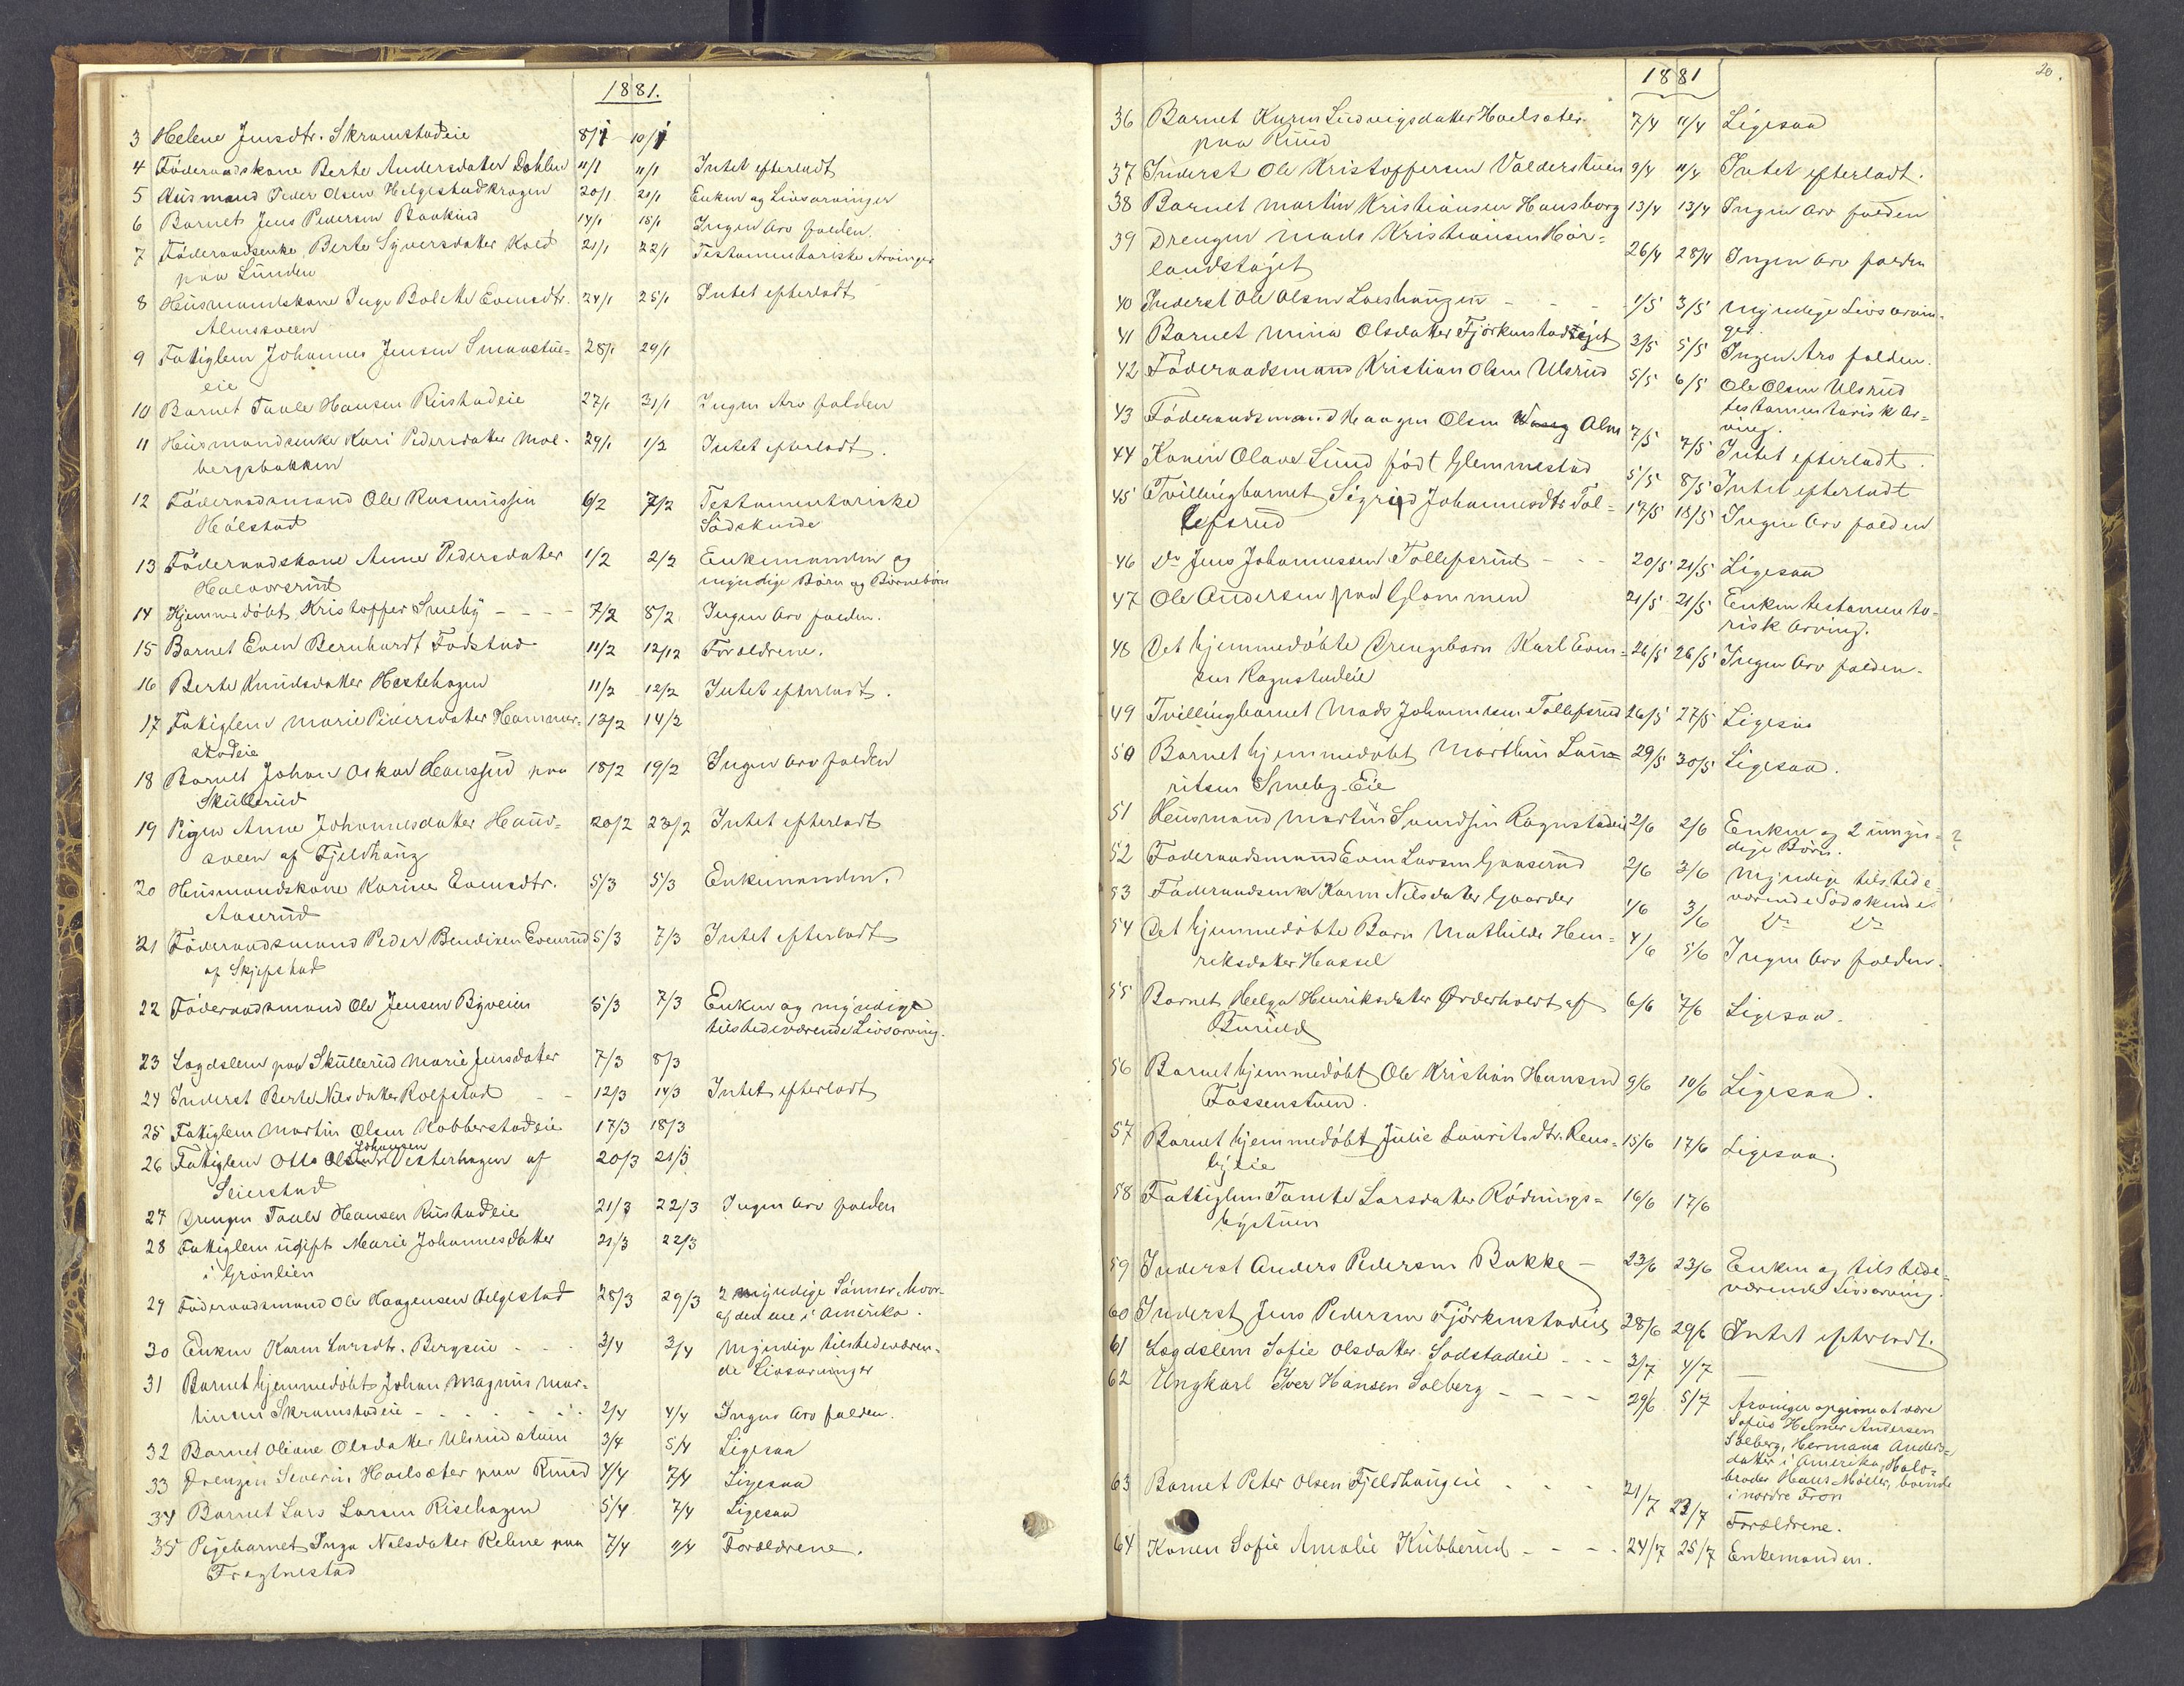 1881.
3 Helene Jensdtr. Skramstadeie 8/1 10/1
4 Föderaadskone Berte Andersdatter Dahlen 11/1 11/1 Intet efterladt
5 Husmand Peder Olsen Helgestadkragen 20/1 21/1 Enken og Livsarvinger
6 Barnet Jens Pedersen 14/1 15/1 Ingen Arv falden.
7 Föderaadsenke Berte Syversdatter Kold 21/1 22/1 Testamentariske Arvinger
paa Lunden
8 Husmandskone Inge Bolette Evensdtr. 24/1 25/1 Intet efterladt
Almsveen
9 Fatiglem Johannes Jensen Smaastu- 28/1 29/1
eie
10 Barnet Taale Hansen Riistadeie 27/1 31/1 Ingen Arv falden
11 Husmandsenke Kari Pedersdatter Mol- 29/1 1/2 Intet efterladt.
bergsbakken
12 Föderaadsmand Ole Rasmussen 6/2 7/2 Testamentariske
Hölstad Södskende
13 Föderaadskone Anne Pedersdatter 1/2 2/2 Enkemanden og
Halvorsrud myndige Börn og Börnebörn
14 Hjemmedöbt Kristoffer Smeby - - - - 7/2 8/2 Ingen Arv falden.
15 Barnet Even Bernhardt Fodstad 11/2 12/12 Foraeldrene.
16 Berte Knudsdatter Hestehagen 11/2 12/2 Intet efterladt.
17 Fattiglem Marie Pedersdatter Hammer- 13/2 14/2
stadeie
18 Barnet Johan Oskar paa 18/2 19/2 Ingen Arv falden
Skullerud
19 Pigen Anne Johannesdatter 20/2 23/2 Intet efterladt
sveen af Fjeldhaug
20 Husmandskone Karine Evensdtr. 5/3 5/3 Enkemanden.
Aaserud
21 Föderaadsmand Peder Bendixen Evenrud 5/3 7/3 Intet efterladt
af Skjefstad
22 Föderaadsmand Ole Jensen Byveien 5/3 7/3 Enken og myndige
tilstedeværende Livsarving.
23 Lægdslem paa Skullerud Marie Jensdatter 7/3 8/3
24 Inderst Berte Nilsdatter Rolfstad - - 12/3 14/3 Intet efterladt
25 Fattiglem Martin Olsen Kobberstadeie 17/3 18/3
Johansen
26 Fatiglem Otto Olsen Vesterhagen af 20/3 21/3
Seierstad
27 Drengen Taale Hansen Riistadeie 21/3 22/3 Ingen Arv falden
28 Fattiglem ugift Marie Johannesdatter 21/3 22/3
i Grönlien
29 Föderaadsmand Ole Haagensen Helgestad 28/3 29/3 2 myndige Sönner, hvor-
af den ene i Amerika.
30 Enken Karen Larsdtr. Bergseie - - - 2/4 3/4 Myndige tilstedeværen-
de Livsarvinger
31 Barnet hjemmedöbt Johan Magnus Mar-
tinsen Skramstadeie - - - - 2/4 4/4 Ingen Arv falden.
32 Barnet Oliane Olsdatter Ulsrudstuen 3/4 5/4 Ligesaa
33 Drengen Severin Hoelsæter paa Ruud 4/4 7/4 Ligesaa
34 Barnet Lars Larsen Risehagen 5/4 7/4 Ligesaa
35 Pigebarnet Inga Nilsdatter paa 7/4 9/4 Foraeldrene.
Fregnestad
20.
1881
36 Barnet Karen Ludvigsdatter Hoelsæter 7/4 11/4 Ligesaa
paa Ruud
37 Inderst Ole Kristoffersen Valderstuen 9/4 11/4 Intet efterladt.
38 Barnet Martin Kristiansen Hansborg 13/4 13/4 Ingen Arv falden
39 Drengen Mads Kristiansen Hör- 26/4 28/4 Ingen Arv falden
landstöjet
40 Inderst Ole Olsen Löeshaugen - - - 1/5 3/5 Myndige Livsarvin-
ger.
41 Barnet Mina Olsdatter Fjörkenstadtejet 3/5 5/5 Ingen Arv falden.
42 Föderaadsmand Kristian Olsen Ulsrud 5/5 6/5 Ole Olsen Ulsrud
testamentarisk Ar-
ving.
43 Föderaadsmand Haagen Olsen Wang Alm 7/5 7/5 Intet efterladt.
44 Konen Olave Lund födt Glemmestad 5/5 8/5 Intet efterladt
45 Tvillingbarnet Sigrid Johannesdtr Tol- 17/5 18/5 Ingen Arv falden
lefsrud
46 Do Jens Johannessen Tollefsrud - - - 20/5 21/5 Ligesaa
47 Ole Andersen paa Glommen 21/5 21/5 Enken testamenta-
risk Arving.
48 Det hjemmedöbte Drengebarn Karl Even- 26/5 26/5 Ingen Arv falden.
sen Ragnstadeie
49 Tvillingbarnet Mads Johannesen Tollefsrud 26/5 27/5 Ligesaa
50 Barnet hjemmedöbt Marthin Lau- 29/5 30/5 Ligesaa.
ritsen Smeby-Eie
51 Husmand Martin Ragnstadeie 2/6 2/6 Enken og 2 umyn-
dige Börn.
52 Föderaadsmand Even Larsen Gaaserud 2/6 3/6 Myndige tilstede-
værende Södskende
53 Föderaadsenke Karen Nilsdatter Gaarder 1/6 3/6 Do Do
54 Det hjemmedöbte Barn Mathilde Hen- 4/6 5/6 Ingen Arv falden.
riksdatter Hassel
55 Barnet Helga Henriksdatter af 6/6 7/6 Ligesaa.
56 Barnet hjemmedöbt Ole Kristian Hansen 9/6 10/6 Ligesaa.
Fossenstuen.
57 Barnet hjemmedöbt Julie Lauritsdtr. Rens- 15/6 17/6 Ligesaa.
byeie
58 Fattiglem Larsdatter Rödnings- 16/6 17/6
bystuen
59 Inderst Anders Pedersen Bakke - 23/6 23/6 Enken og tilstede-
værende Livsarving.
60 Inderst Jens Pedersen Fjörkenstadeie 28/6 29/6 Intet efterladt.
61 Lægdslem Sofie Olsdatter Sodstadeie - - - 3/7 4/7
62 Ungkarl Iver Hansen Solberg - - - - 29/6 5/7 Arvinger opgives at være
Sofius Helmer Andersen
Solberg, Hermana Anders-
datter i Amerika, Halv-
broder Hans Möller, boende
i nordre Fron
63 Barnet Peter Olsen Fjeldhaugeie - - - 21/7 23/7 Forældrene.
64 Konen Sofie Amalie Kubberud - - - - 24/7 25/7 Enkemanden.